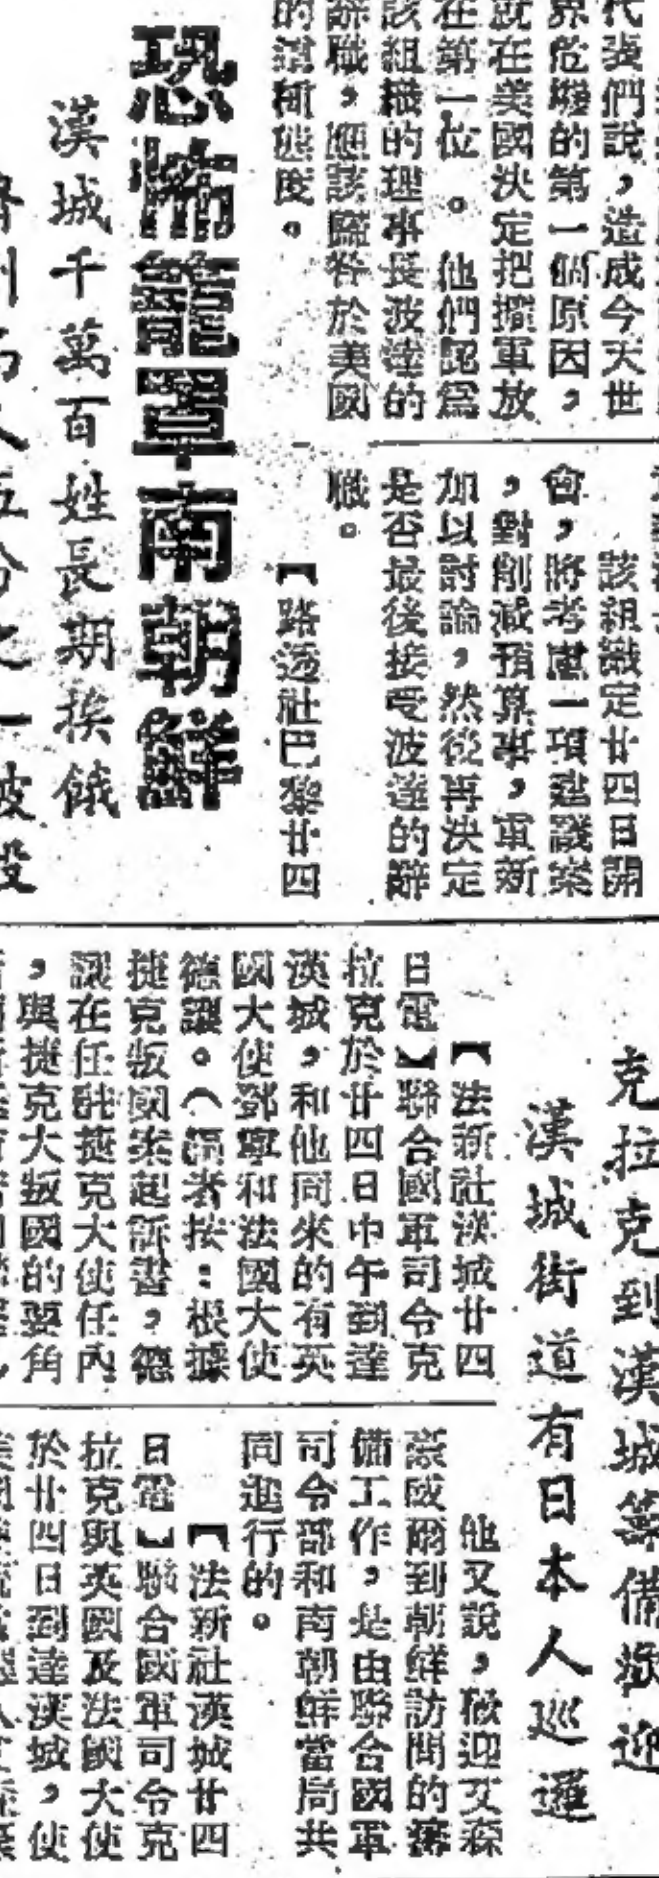 代表們說，造成今天世
界危機的第一個原因，
就在美國決定把擴軍放
在第一位。他們認爲
該組織的理事長波達的
辭職，應該歸咎於美國
的這種態度。
該組織定廿四日開
會，將考慮一項建議案
，對削減預算事，重新
加以討論，然後再決定
是否最後接受波達的辭
職。
【路透社巴黎廿四
恐怖籠罩南朝鮮
漢城千萬百姓長期挨餓
濟州島人五分之一被殺
克拉克到漢城籌備歡迎
漢城街道有日本人巡邏
【法新社漢城廿四
日電】聯合國軍司令克
拉克於廿四日中午到達
漢城，和他同來的有英
國大使鄧寧和法國大使
德讓。（編者按：根據
捷克叛國案起訴書，德
讓在任駐捷克大使任內
，與捷克大叛國的要角
他又說，歡迎艾森
豪威爾到朝鮮訪問的籌
備工作，是由聯合國軍
司令部和南朝鮮當局共
同進行的。
【法新社漢城廿四
日電】聯合國軍司令克
拉克與英國及法國大使
於廿四日到達漢城，使